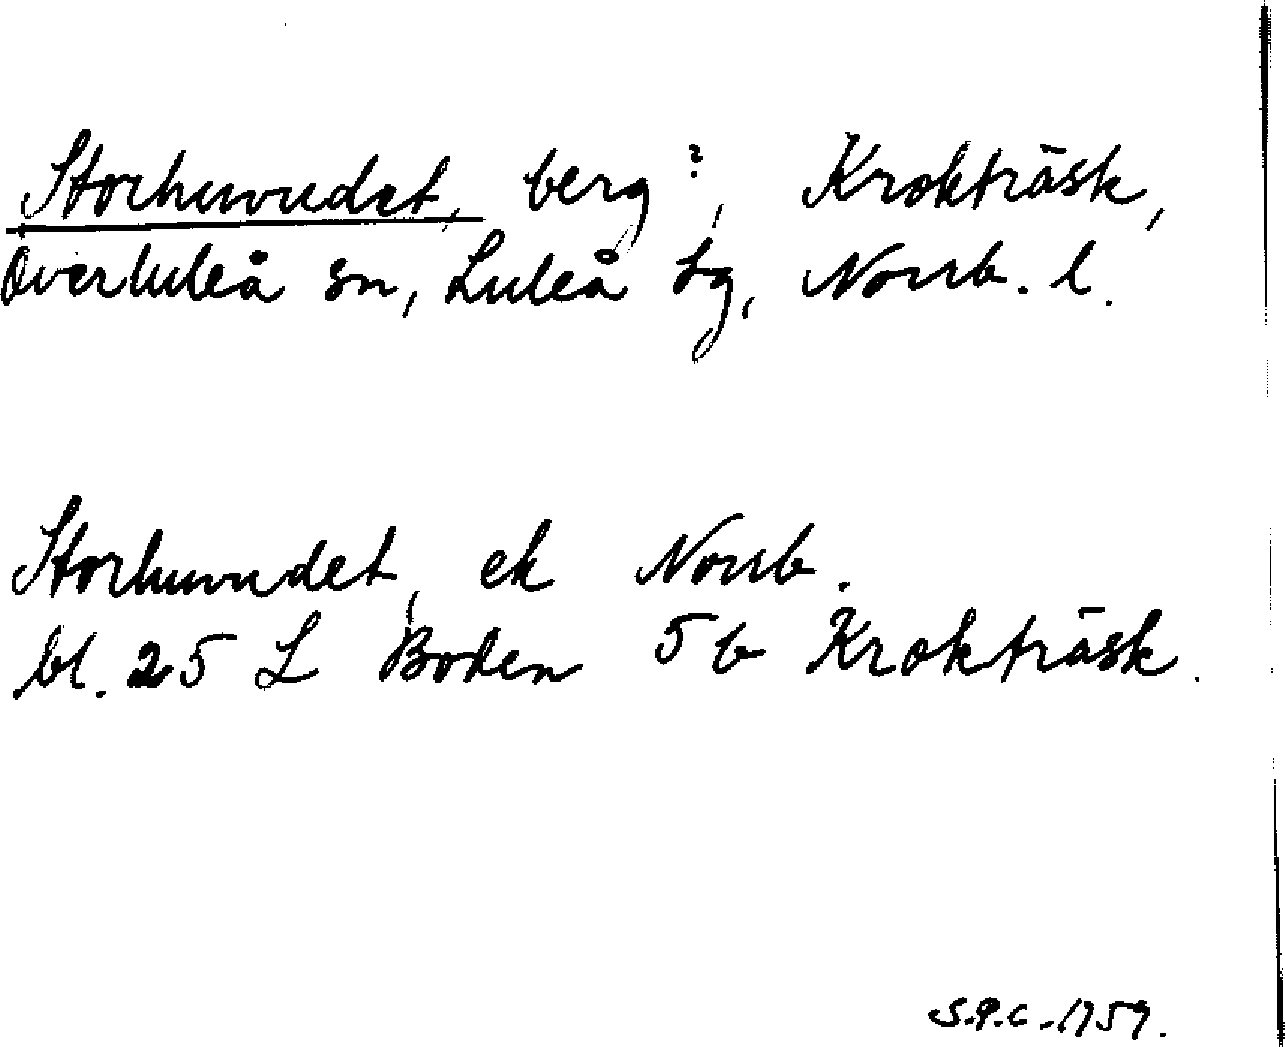 Storhuvudet, berg?, Krokträsk,
Överluleå sn, Luleå tg, Norrb. l.
Storhuvudet, ek Norrb.
bl. 25 L Boden 5 b Krokträsk.
S.P.C. 1959.